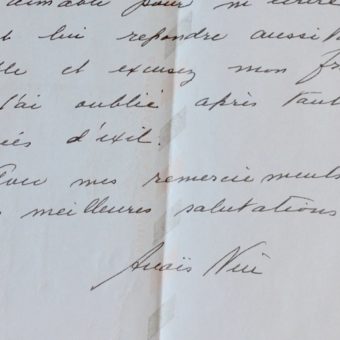 aimable pour m'écrire
lui répondre aussit
et excusez mon fr
j'ai oublié après tant
d'exil.
Avec mes remerciements
meilleures salutations
Anaïs Nin